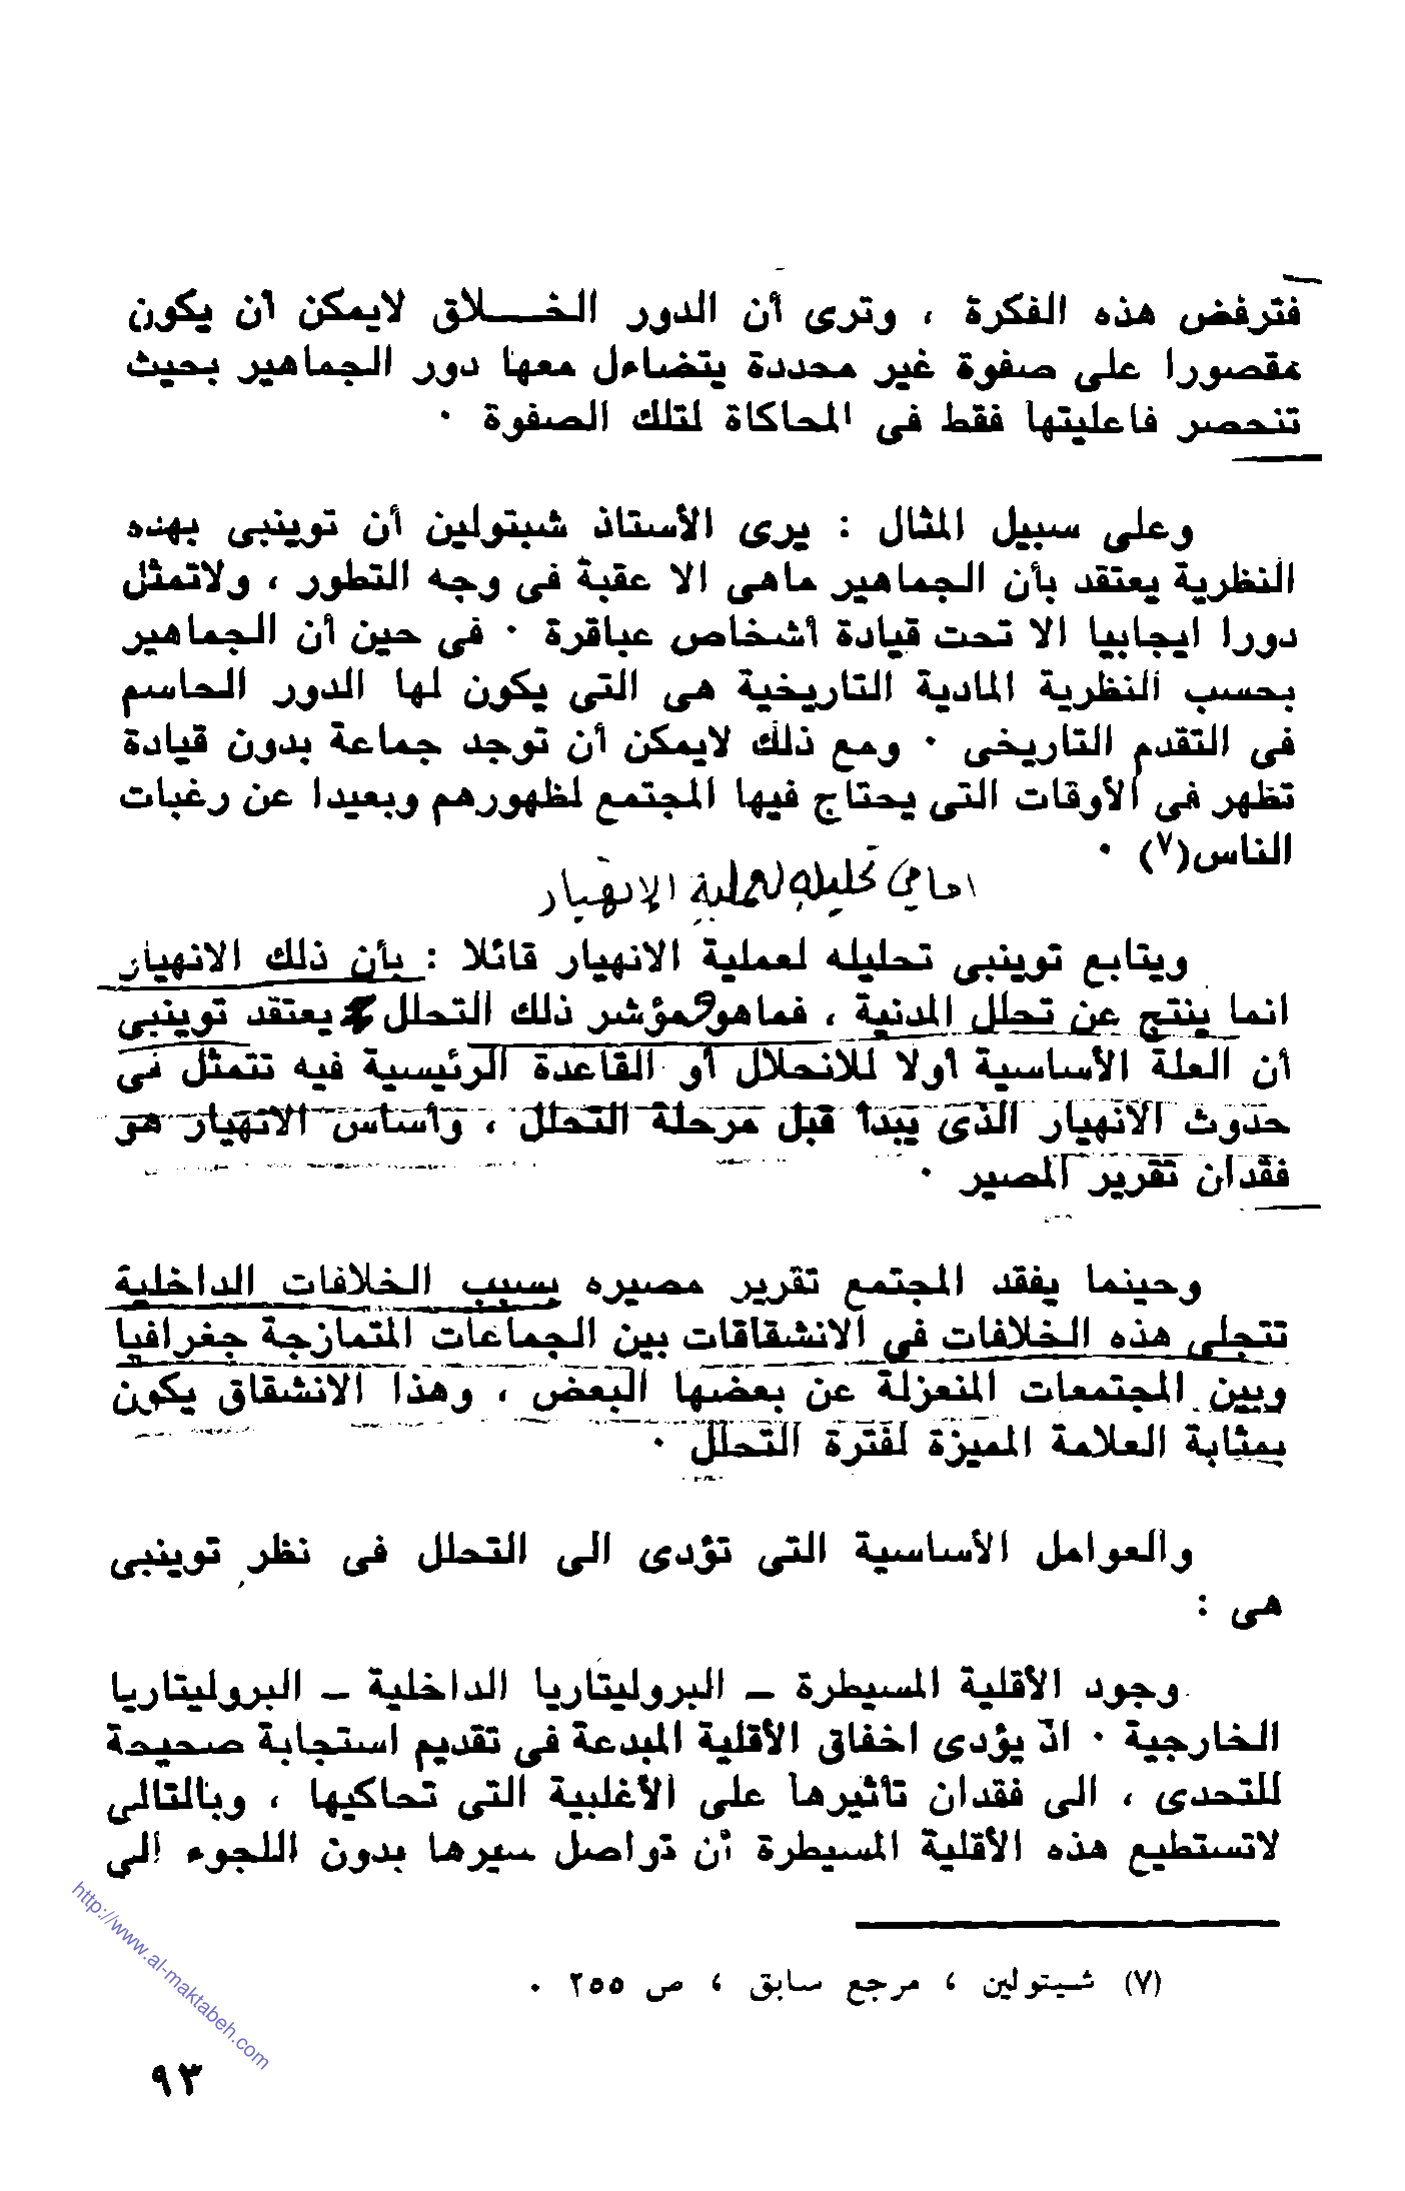 فترفض هذه الفكرة ، وترى أن الدور الخـــلاق لايمكن أن يكون
مقصورا على صفوة غير محددة يتضاءل معها دور الجماهير بحيث
تنحصر فاعليتها فقط فى المحاكاة لتلك الصفوة ٠
وعلى سبيل المثال : يرى الأستاذ شبتولين أن توينبى بهذه
النظرية يعتقد بأن الجماهير ماهى الا عقبة فى وجه التطور ، ولاتمثل
دورا ايجابيا الا تحت قيادة أشخاص عباقرة ٠ فى حين أن الجماهير
بحسب النظرية المادية التاريخية هى التى يكون لها الدور الحاسم
فى التقدم التاريخى ٠ ومع ذلك لايمكن أن توجد جماعة بدون قيادة
تظهر فى الأوقات التى يحتاج فيها المجتمع لظهورهم وبعيدا عن رغبات
الناس(٧) ٠
اما في تحليله لعملية الانهيار
ويتابع توينبى تحليله لعملية الانهيار قائلا : بأن ذلك الانهيار
انما ينتج عن تحلل المدنية ، فماهو مؤشر ذلك التحلل ؟ يعتقد توينبى
أن العلة الأساسية أولا للانحلال أو القاعدة الرئيسية فيه تتمثل فى
حدوث الانهيار الذى يبدأ قبل مرحلة التحلل ، وأساس الانهيار هو
فقدان تقرير المصير ٠
وحينما يفقد المجتمع تقرير مصيره بسبب الخلافات الداخلية
تتجلى هذه الخلافات فى الانشقاقات بين الجماعات المتمازجة جغرافيا
وبين المجتمعات المنعزلة عن بعضها البعض ، وهذا الانشقاق يكون
بمثابة العلامة المميزة لفترة التحلل ٠
والعوامل الأساسية التى تؤدى الى التحلل فى نظر توينبى
هى :
وجود الأقلية المسيطرة – البروليتاريا الداخلية – البروليتاريا
الخارجية ٠ اذ يؤدى اخفاق الأقلية المبدعة فى تقديم استجابة صحيحة
للتحدى ، الى فقدان تأثيرها على الأغلبية التى تحاكيها ، وبالتالى
لاتستطيع هذه الأقلية المسيطرة أن تواصل سيرها بدون اللجوء الى
(٧) شـيتولين ، مرجع سابق ، ص ٢٥٥ ٠
٩٣
http://www.al-maktabeh.com